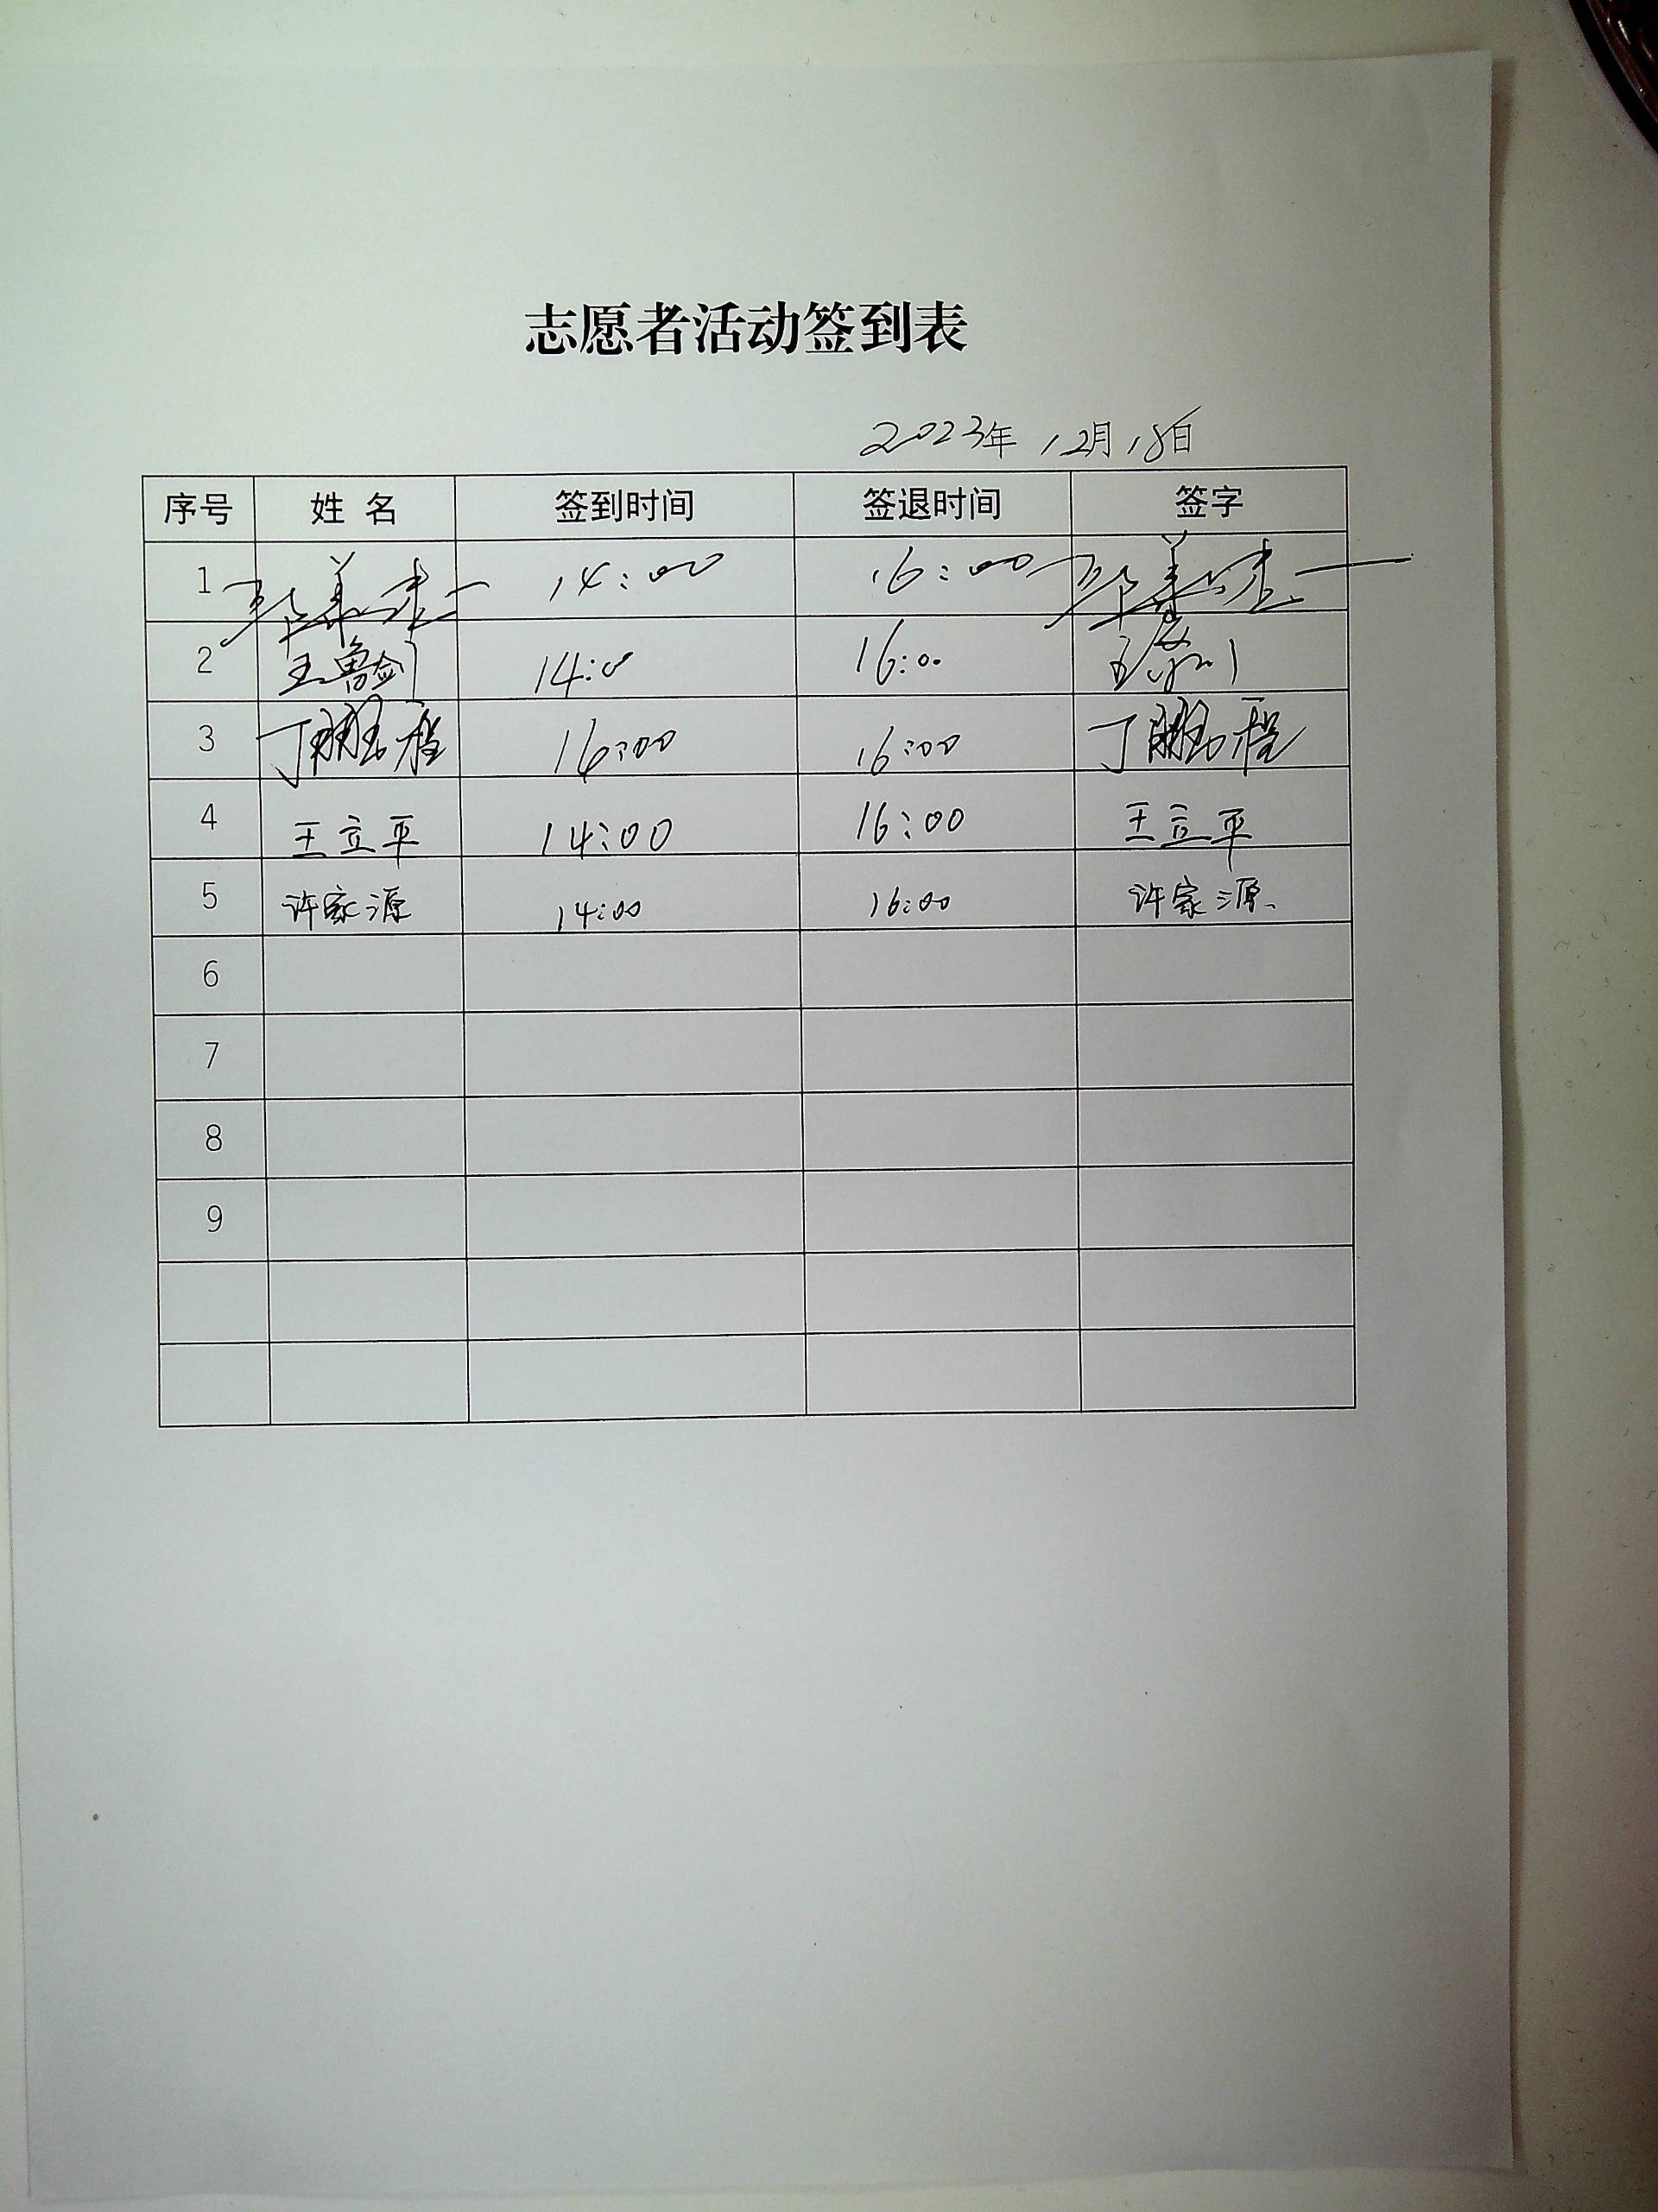 志愿者活动签到表
2023年 12月18日
序号 姓 名 签到时间 签退时间 签字
1 14:00 16:00
2 王鲁剑 14:0 16:00
3 丁鹏程 16:00 16:00 丁鹏程
4 王立平 14:00 16:00 王立平
5 许家源 14:00 16:00 许家源
6
7
8
9